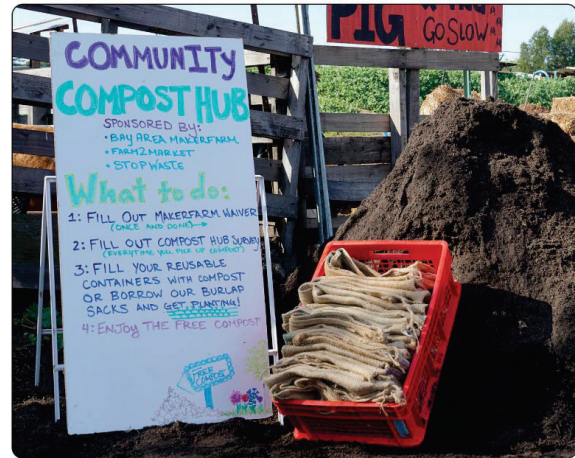 COMMUNITY
COMPOST HUB
SPONSORED BY:
• BAY AREA MAKERFARM
• FARM2MARKET
• STOPWASTE
What to do:
1: FILL OUT MAKERFARM WAIVER
(ONCE AND DONE)→
2: FILL OUT COMPOST HUB SURVEY
(EVERYTIME YOU PICK UP COMPOST)
3: FILL YOUR REUSABLE
CONTAINERS WITH COMPOST
OR BORROW OUR BURLAP
SACKS AND GET PLANTING!
4: ENJOY THE FREE COMPOST
FREE
COMPOST
PIG
GO SLOW